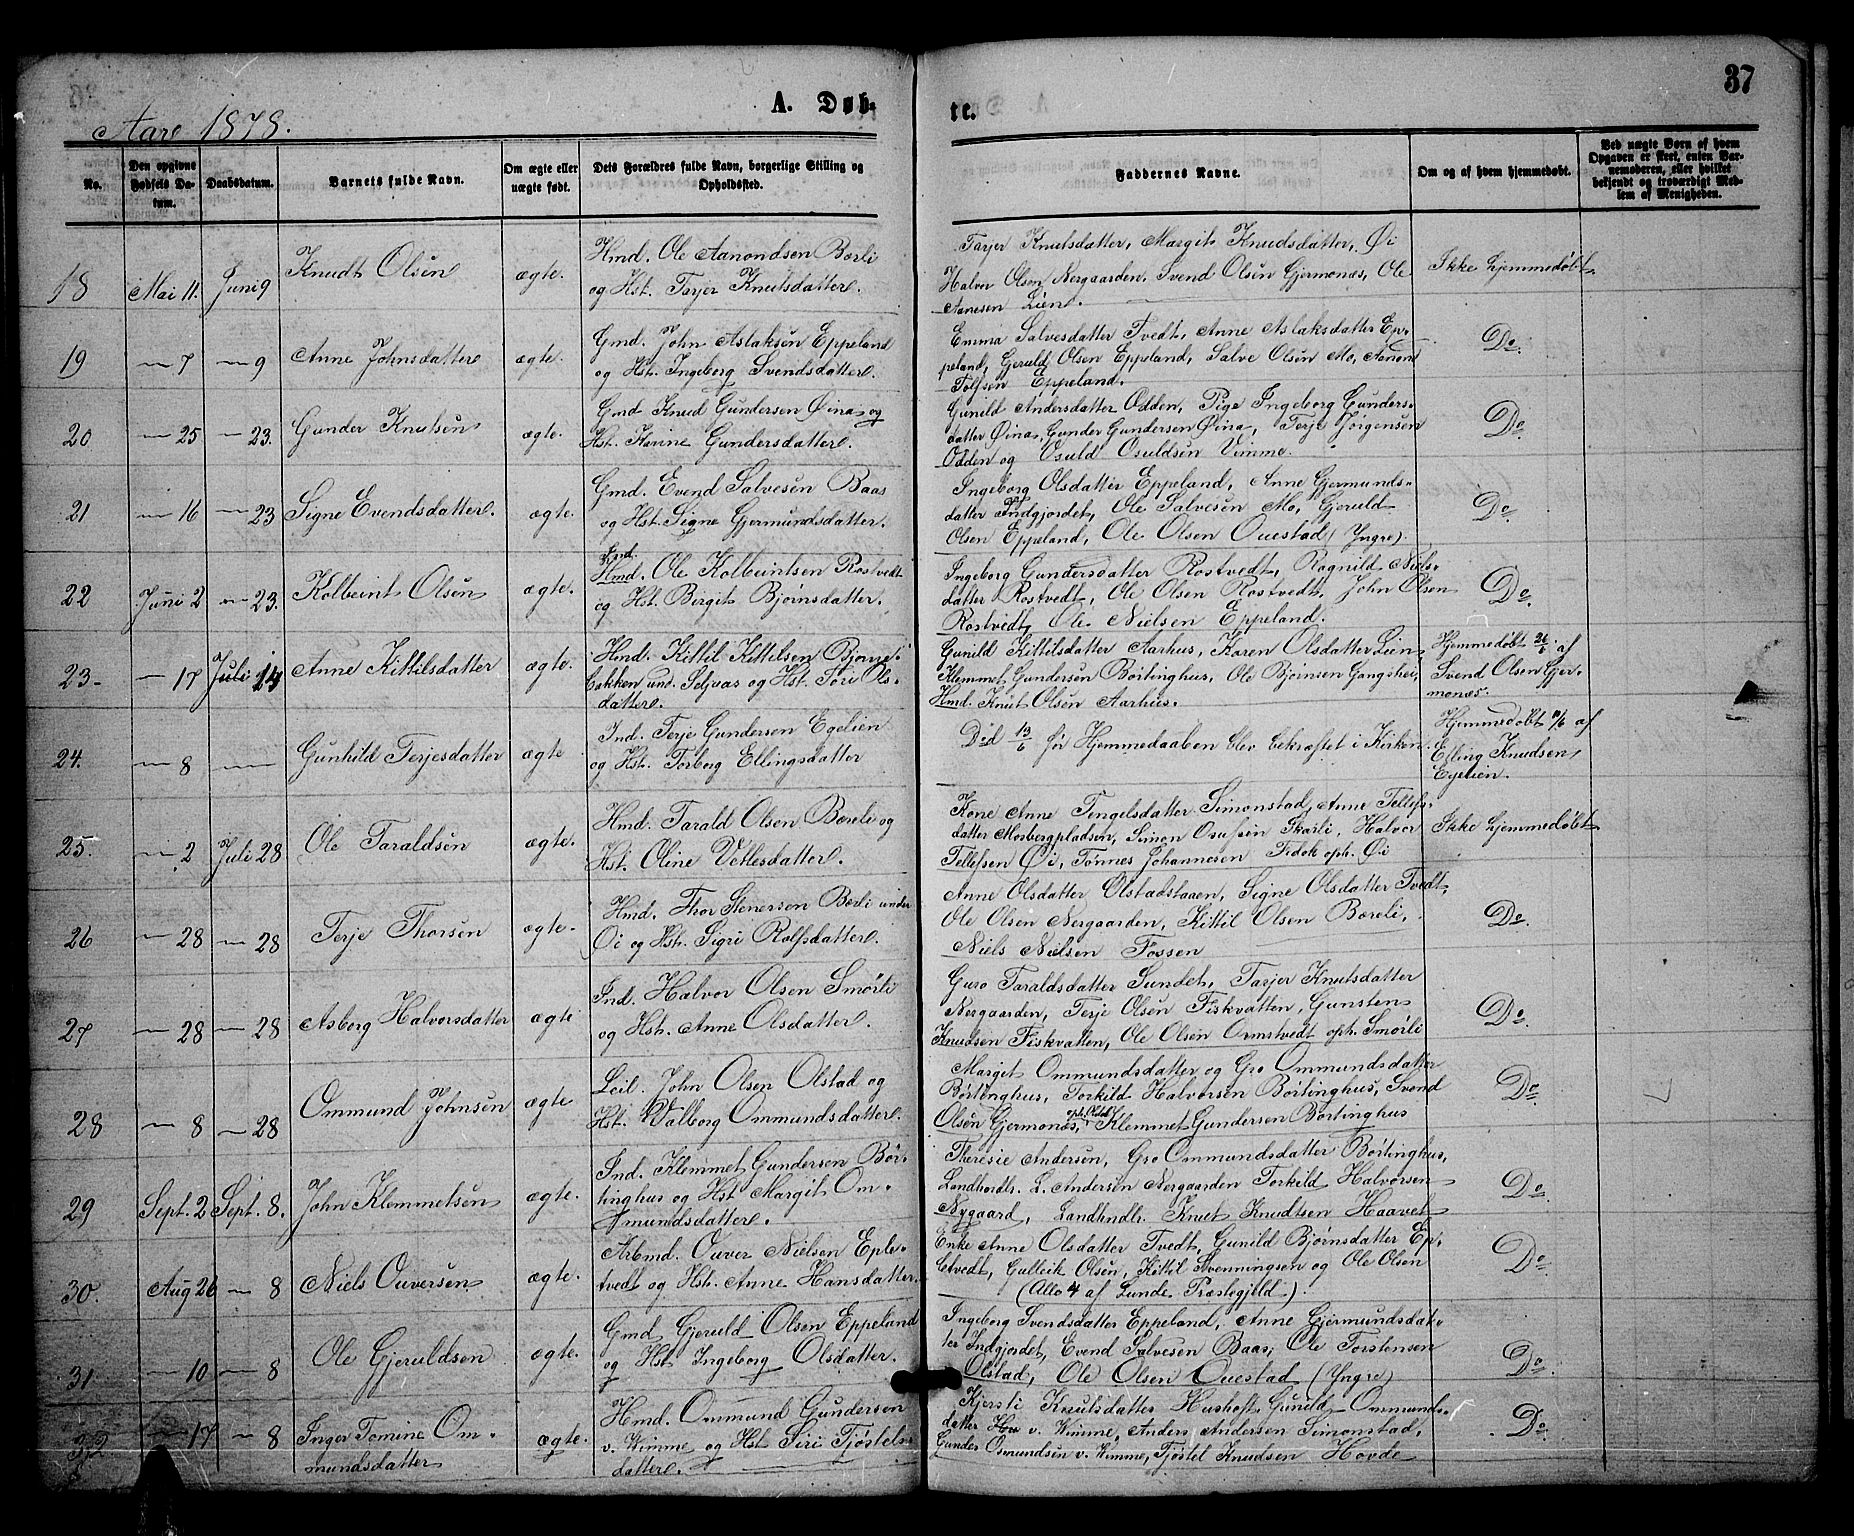 37
A. Døbte.
Aare 1878.
No.
Den opgivne Fødsels Datum.
Daabsdatum.
Barnets fulde Navn.
Om ægte eller uægte født.
Dets Forældres fulde Navn, borgerlige Stilling og Opholdsted.
Faddernes Navne.
Om og af hvem hjemmedøbt.
Ved uægte Børn af hvem Opgaven er skeet, enten Barnemoderen, eller hvilket bekjendt og troværdigt Medlem af Menigheden.
18 Mai 11. Juni 9 Knudt Olsen ægte.
Hmd. Ole Aanondsen Bærli
og Hst. Tarjer Knutsdatter.
Tarjer Knutsdatter, Margit Knudsdatter, Øi
Halvor Olsen Nergaarden, Svend Olsen Gjermonæs, Ole
Aanesen Lien.
Ikke hjemmedøbt.
19 — 7 — 9 Anne Johnsdatter ægte.
Gmd. John Aslaksen Eppeland
og Hst. Ingeborg Svendsdatter.
Emma Salvesdatter Tvedt, Anne Aslaksdatter Ep-
peland, Gjeruld Olsen Eppeland, Salve Olsen Mo, Aanon
Tolfsen Eppeland.
Do.
20 — 25 — 23. Gunder Knutsen ægte.
Gmd Knud Gundersen Øina og
Hst. Karine Gundersdatter.
Gunild Andersdatter Odden, Pige Ingeborg Gunders-
datter Øina, Gunder Gundersen Øina, Terje Jørgensen
Odden og Osuld Osuldsen Vimme.
Do
21 — 16 — 23 Signe Evendsdatter. ægte.
Gmd. Evend Salvesen Baas
og Hst. Signe Gjermundsdatter.
Ingeborg Olsdatter Eppeland, Anne Gjermunds-
datter Indgjordet, Ole Salvesen Mo, Gjeruld
Olsen Eppeland, Ole Olsen Ouestad (Yngre).
Do
22 Juni 2 — 23. Kolbeint Olsen ægte.
Ind.
Hmd. Ole Kolbeintsen Rostvedt
og Hst. Bergit Bjornsdatter.
Ingeborg Gundersdatter Rostvedt, Ragnild Niels-
datter Rostvedt, Ole Olsen Rostvedt, John Olsen
Rostvedt, Ole Nielsen Eppeland.
Do
23- — 17 Juli 14 Anne Kittilsdatter ægte.
Hmd. Kittil Kittilsen Bjorne-
bakken und. Seljaas og Hst. Siri Ols-
datter.
Gunild Kittilsdatter Aarhus, Karen Olsdatter Lien,
Klemmet Gundersen Børtinghus, Ole Bjørnsen Gangshei,
Hmd. Knut Olsen Aarhus.
Hjemmedøbt 26/6 af
Svend Olsen Gjer-
monæs.
24. — 8 — Gunhild Terjesdatter ægte
Ind. Terje Gundersen Egelien
og Hst. Torborg Ellingsdatter
Død 13/6 før Hjemmedaaben blev bekræftet i Kirken.
Hjemmedøbt 11/6 af
Elling Knudsen
Egelien.
25. — 2 Juli 28 Ole Taraldsen ægte.
Hmd. Tarald Olsen Bæreli og
Hst. Oline Vetlesdatter.
Kone Anne Tengelsdatter Simonstad, Anne Tellefs-
datter Mosbergpladsen, Simon Osufsen Skarli, Halvor
Tellefsen Øi, Tønnes Johannesen Fidok oph. Øi
Ikke hjemmedøbt
26 — 28 — 28 Terje Thorsen ægte.
Hmd. Thor Stenersen Bærli under
Øi og Hst. Sigri Rolfsdatter.
Anne Olsdatter Olstadstaaen, Signe Olsdatter Tvedt,
Ole Olsen Nergaarden, Kittil Olsen Bæreli,
Niels Nielsen Fossen
Do.
27 — 28 — 28 Asborg Halvorsdatter ægte
Ind. Halvor Olsen Smørli
og Hst. Anne Olsdatter.
Guro Taraldsdatter Sundet, Tarjer Knutsdatter
Nergaarden, Terje Olsen Fiskvatten, Gunsten
Knudsen Fiskvatten, Ole Olsen Ormstvedt oph. Smørli
Do.
28 — 8 — 28 Ommund Johnsen ægte
Leil. John Olsen Olstad og
Hst. Valborg Ommundsdatter.
Margit Ommundsdatter og Gro Ommundsdatter
Børtinghus, Torkild Halvorsen Børtinghus, Svend
Olsen Gjermonæs, oph. Olstad, Klemmet Gundersen Børtinghus
Do.
29 Sept. 2 Sept. 8. John Klemmetsen ægte.
Ind. Klemmet Gundersen Bør-
tinghus og Hst Margit Om-
mundsdatter.
Theresie Andersen, Gro Ommundsdatter Børtinghus,
Landhandlr. L. Andersen Nergaarden Torkild Halvorsen
Nygaard, Landhndlr. Knut Knudtsen Haavet
Do.
30. Aug 26 — 8 Niels Ouversen ægte.
Arbmd. Ouver Nielsen Eple-
tvedt og Hst. Anne Hansdatter.
Enke Anne Olsdatter Tvedt, Gunild Bjørnsdatter Ep-
letvedt, Gulleik Olsen, Kittil Svenningsen og Ole Olsen
(Alle 4 af Lunde Præstegjæld.)
Do.
31. — 10 — 8 Ole Gjeruldsen ægte.
Gmd Gjeruld Olsen Eppeland
og Hst Ingeborg Olsdatter.
Ingeborg Svendsdatter Eppeland, Anne Gjermundsdat-
ter Indgjordet, Evend Salvesen Baas, Ole Torstensen
Olstad, Ole Olsen Ouestad (Yngre)
Do.
32 — 17 — 8 Inger Tomine Om-
mundsdatter ægte.
Hmd. Ommund Gundersen
v. Wimme og Hst Siri Tjøstels-
datter.
Kjersti Knutsdatter Husholt, Gunild Ommunds-
datter Hu v. Wimme, Anders Andersen Simonstad,
Gunder Osmundsen v. Wimme, Tjøstel Knudsen Hovde
Do.